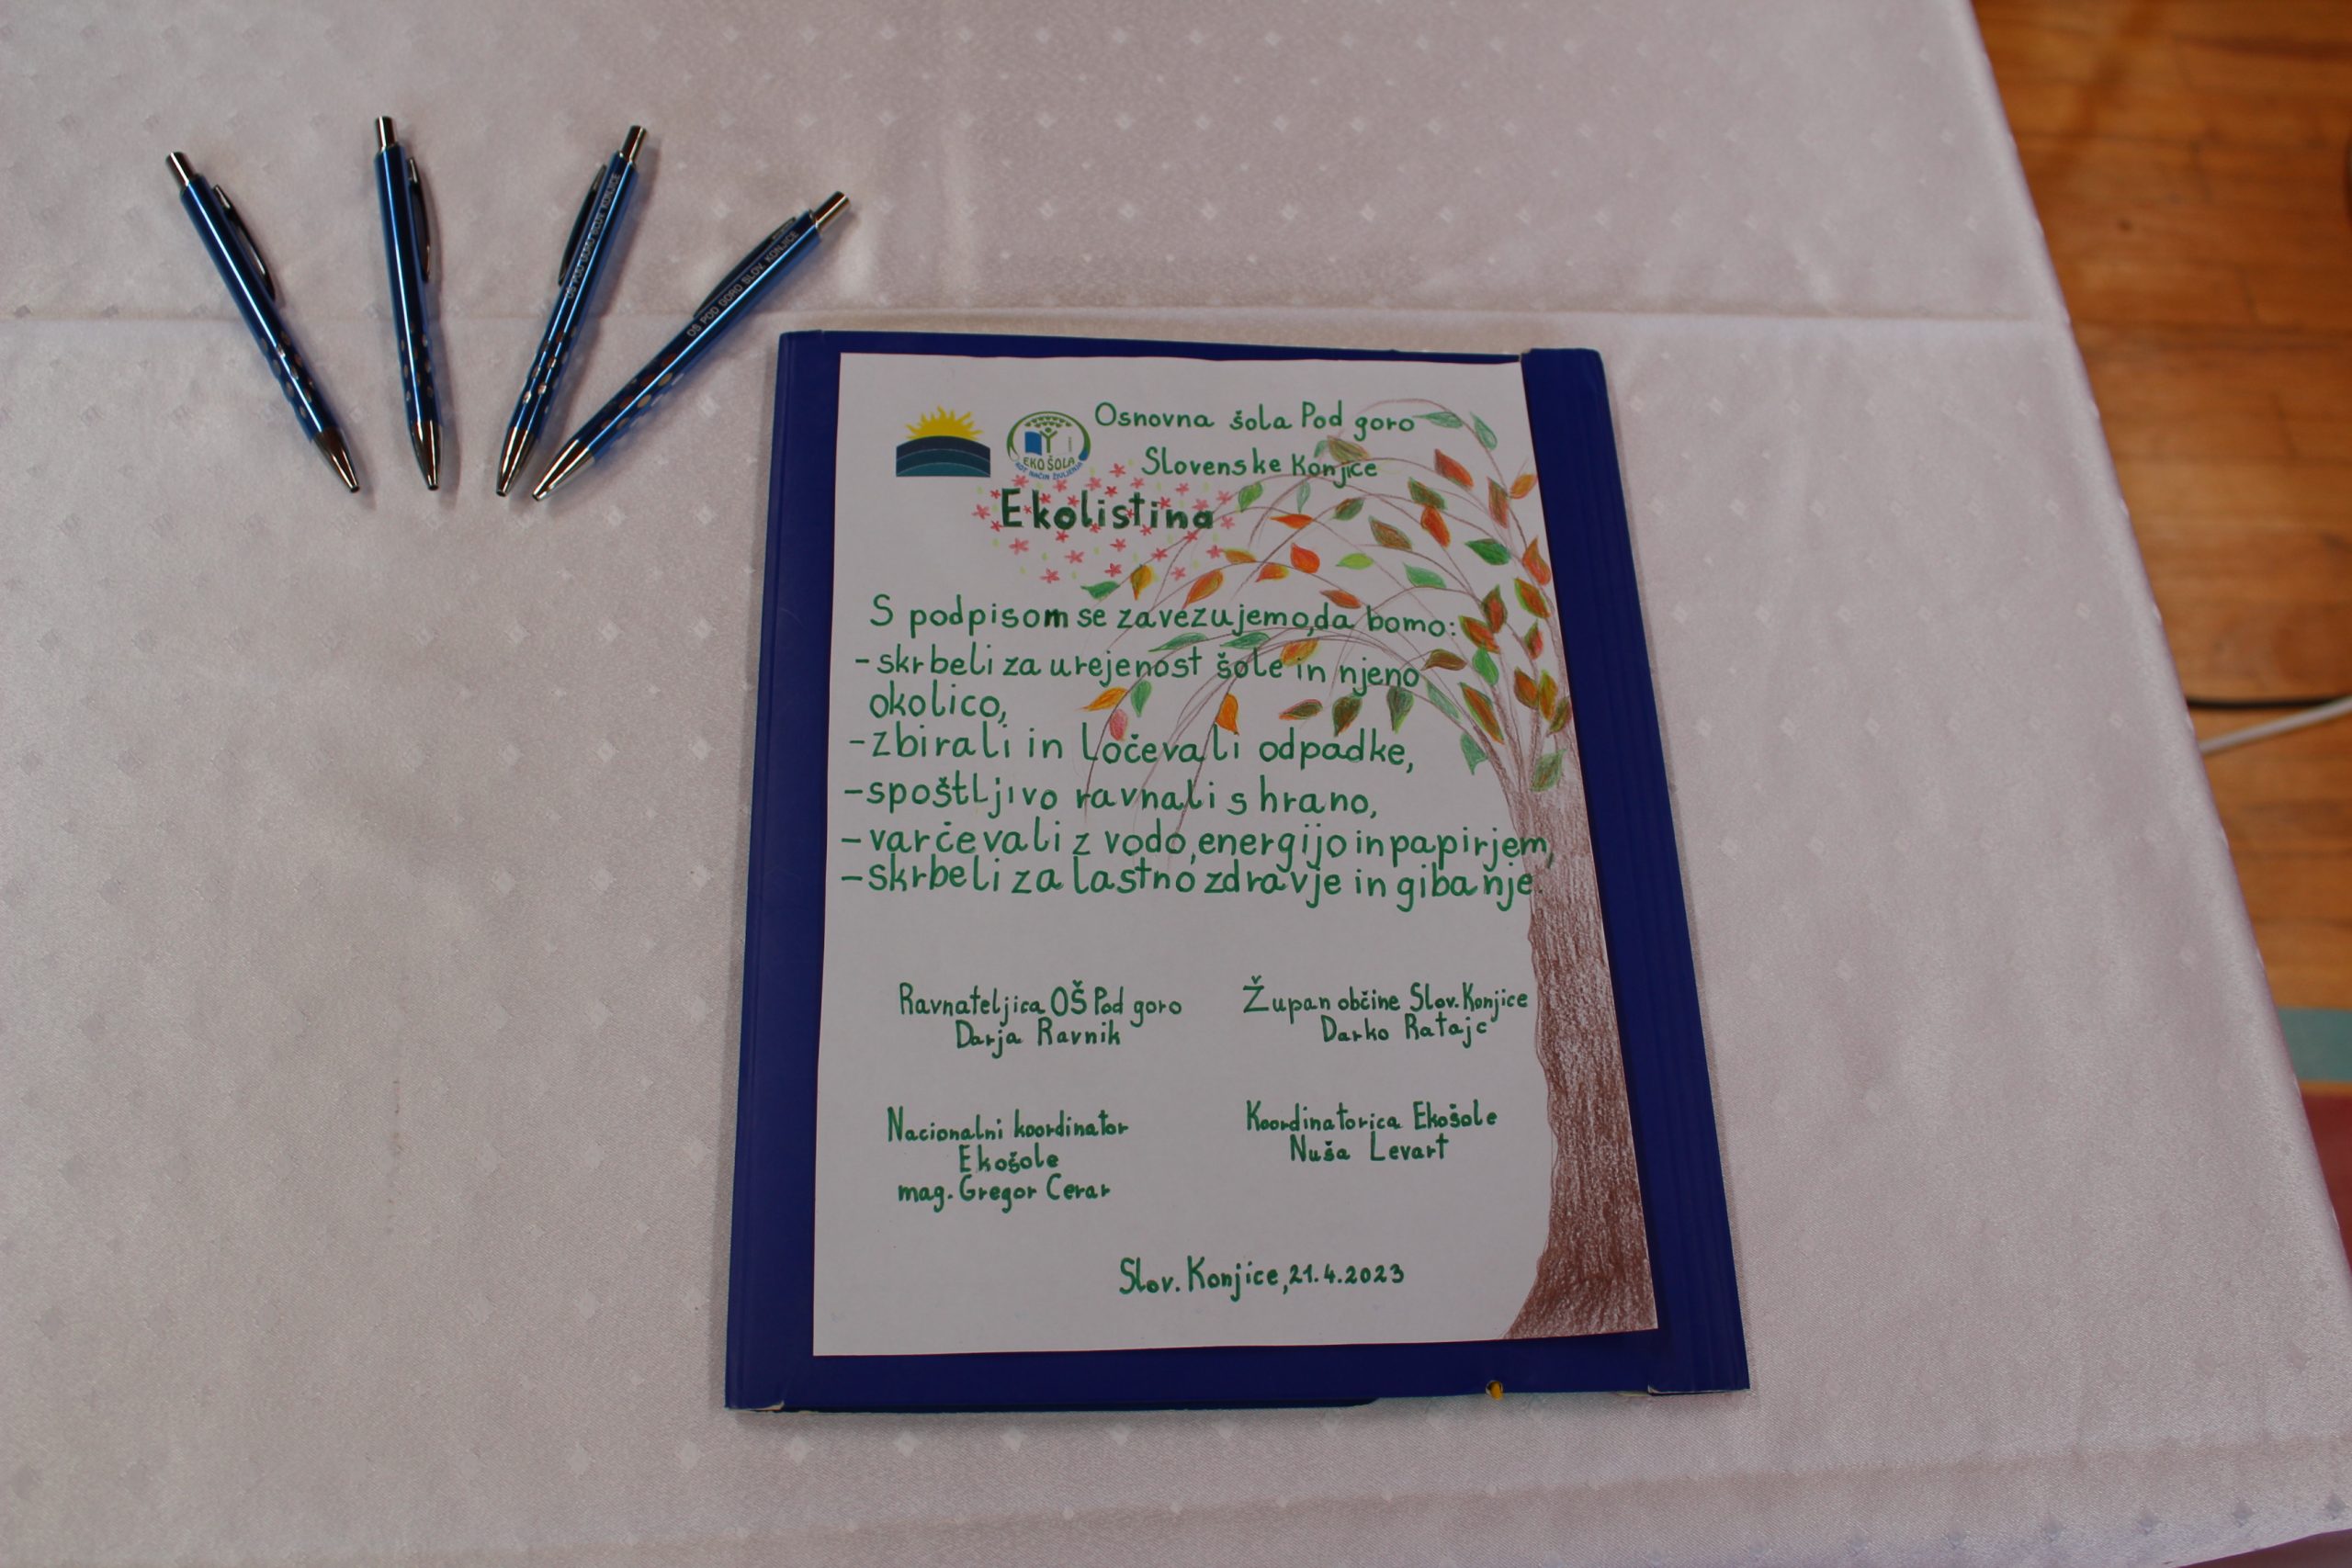 OŠ POD GORO SLOV. KONJICE
OŠ POD GORO SLOV. KONJICE
Osnovna šola Pod goro
Slovenske Konjice
EKO ŠOLA
KOT NAČIN ŽIVLJENJA
Ekolistina
S podpisom se zavezujemo,da bomo:
-skrbeli za urejenost šole in njeno
okolico,
-zbirali in ločevali odpadke,
-spoštljivo ravnali s hrano,
-varčevali z vodo,energijo in papirjem,
-skrbeli za lastno zdravje in gibanje.
Ravnateljica OŠ Pod goro
Darja Ravnik
Župan občine Slov. Konjice
Darko Ratajc
Nacionalni koordinator
Ekošole
mag. Gregor Cerar
Koordinatorica Ekošole
Nuša Levart
Slov. Konjice,21.4.2023